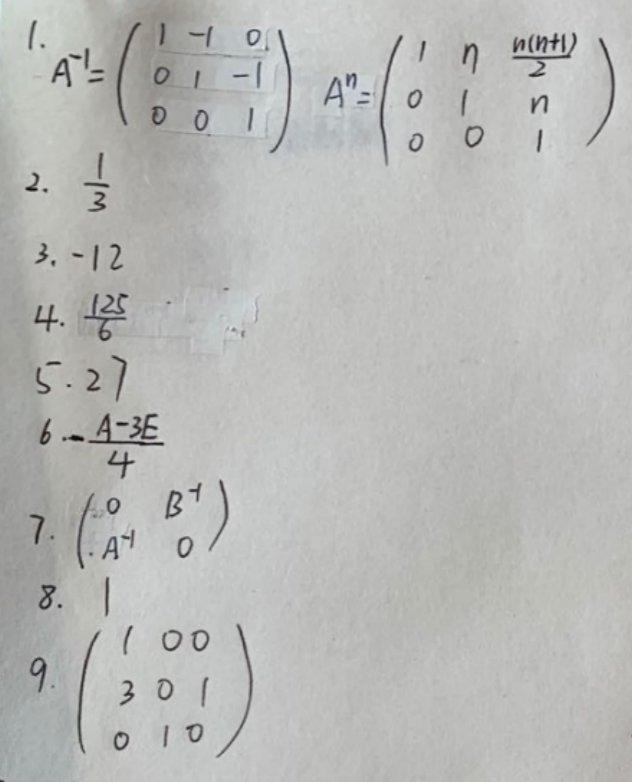 1. A⁻¹ = ( 1 -1 0 ; 0 1 -1 ; 0 0 1 ) Aⁿ = ( 1 n n(n+1)/2 ; 0 1 n ; 0 0 1 )
2. 1/3
3. -12
4. 125/6
5. 27
6. - (A-3E)/4
7. ( 0 B⁻¹ ; A⁻¹ 0 )
8. 1
9. ( 1 0 0 ; 3 0 1 ; 0 1 0 )